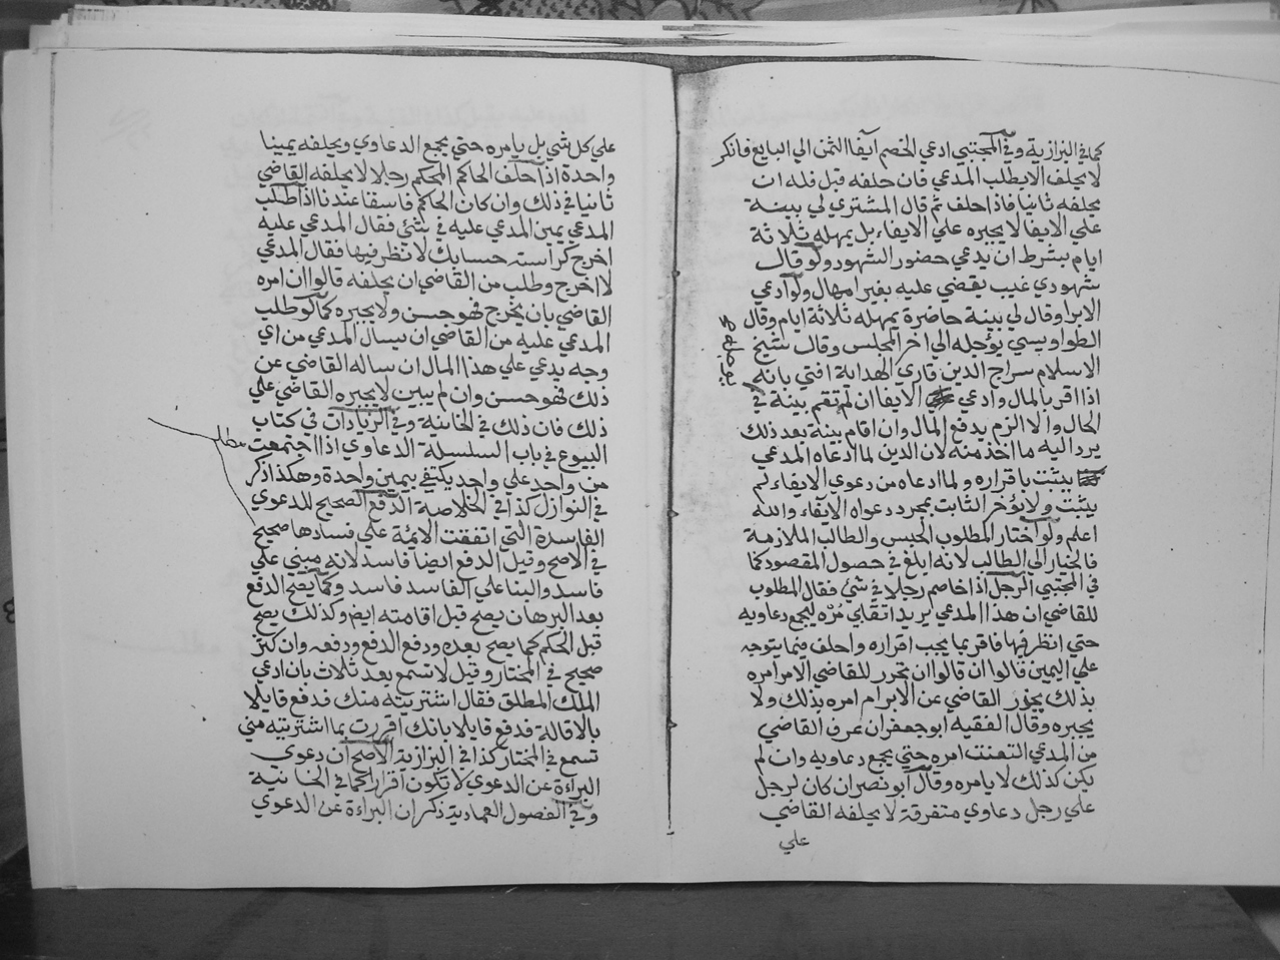 كما في البزازية وفي المجتبي ادعي الخصم آيفا الثمن الي البايع فانكر
لا يحلف الا بطلب المدعي فان حلفه قبل فله ان
يحلفه ثانيا فاذا حلف ثم قال المشتري لي بينة
علي الايفا لا يجبره علي الايفاء بل يمهله ثلاثة
ايام بشرط ان يدعي حضور الشهود ولو قال
شهودي غيب يقضي عليه بغير امهال ولو ادعي
الابرا وقال لي بينة حاضرة يمهله ثلاثة ايام وقال
الطواويسي يؤجله الي اخر المجلس وقال شيخ
الاسلام سراج الدين قاري الهداية افتي بانه
اذا اقر بالمال وادعي الايفا ان لم تقم بينة في
الحال والا الزم بدفع المال وان اقام بينة بعد ذلك
يرد اليه ما اخذ منه لان الدين لما ادعاه المدعي
يثبت باقراره ولما ادعاه من دعوي الايفاء لم
يثبت ولا نؤخر الثابت بمجرد دعواه الآيفاء والله
اعلم ولو اختار المطلوب الحبس والطالب الملازمة
فالخيار الي الطالب لانه ابلغ في حصول المقصود كما
في المجتبي الرجل اذا خاصم رجلا في شئ فقال المطلوب
للقاضي ان هذا المدعي يريد اتقابي مره ليجمع دعاويه
حتي انظر فيها فاقر بما يجب اقراره واحلف فيما يتوجه
علي اليمين قالوا ان قالوا ان تحرر للقاضي الامر امره
بذلك القاضي عن الابرام امره بذلك ولا
يجبره وقال الفقيه ابو جعفر ان عرف القاضي
من المدعي التعنت امره حتي يجمع دعاويه وان لم
يكن كذلك لا يامره وقال ابو نصر ان كان لرجل
علي رجل دعاوي متفرقة لا يحلفه القاضي
علي
علي كل شي بل يامره حتي يجمع الدعاوي ويحلفه يمينا
واحدة اذا حلف الحاكم المحكم رجلا لا يحلفه القاضي
ثانيا في ذلك وان كان الحاكم فاسقا عندنا اذا طلب
المدعي يمين المدعي عليه في شئ فقال المدعي عليه
اخرج كراسته حسابك لانظر فيها فقال المدعي
لا اخرج وطلب من القاضي ان يحلفه قالوا ان امره
القاضي بان يخرج فهو حسن ولا يجبره كما لو طلب
المدعي عليه من القاضي ان يسال المدعي من اي
وجه يدعي علي هذا المال ان ساله القاضي عن
ذلك فهو حسن وان لم يبين لا يجبره القاضي علي
ذلك فان ذلك في الخانية وفي الزيادات في كتاب
البيوع في باب السلسلة الدعاوي اذا اجتمعت
مطلب
من واحد علي واحد يكتفي بيمين واحدة وهكذا ذكر
في النوازل كذا في الخلاصة الدفع الصحيح للدعوي
الفاسدة التي اتفقت الائمة علي فسادها صحيح
في الاصح وقيل الدفع ايضا فاسد لانه مبني علي
فاسد والبنا علي الفاسد فاسد وكما يصح الدفع
بعد البرهان يصح قبل اقامته ايض وكذلك يصح
قبل الحكم كما يصح بعده ودفع الدفع ودفعه وان كثر
صحيح في المختار وقبل لا تسمع بعد ثلاث بان ادعي
الملك المطلق فقال اشتريته منك فدفع قايلا
بالاقالة فدفع قايلا بانك اقررت بما اشتريته مني
تسمع في المختار كذا في البزازية الاصح ان دعوي
البراءة عن الدعوي لا تكون اقرارا كما في الخانية
وفي الفصول العمادية ذكر ان البراءة عن الدعوي